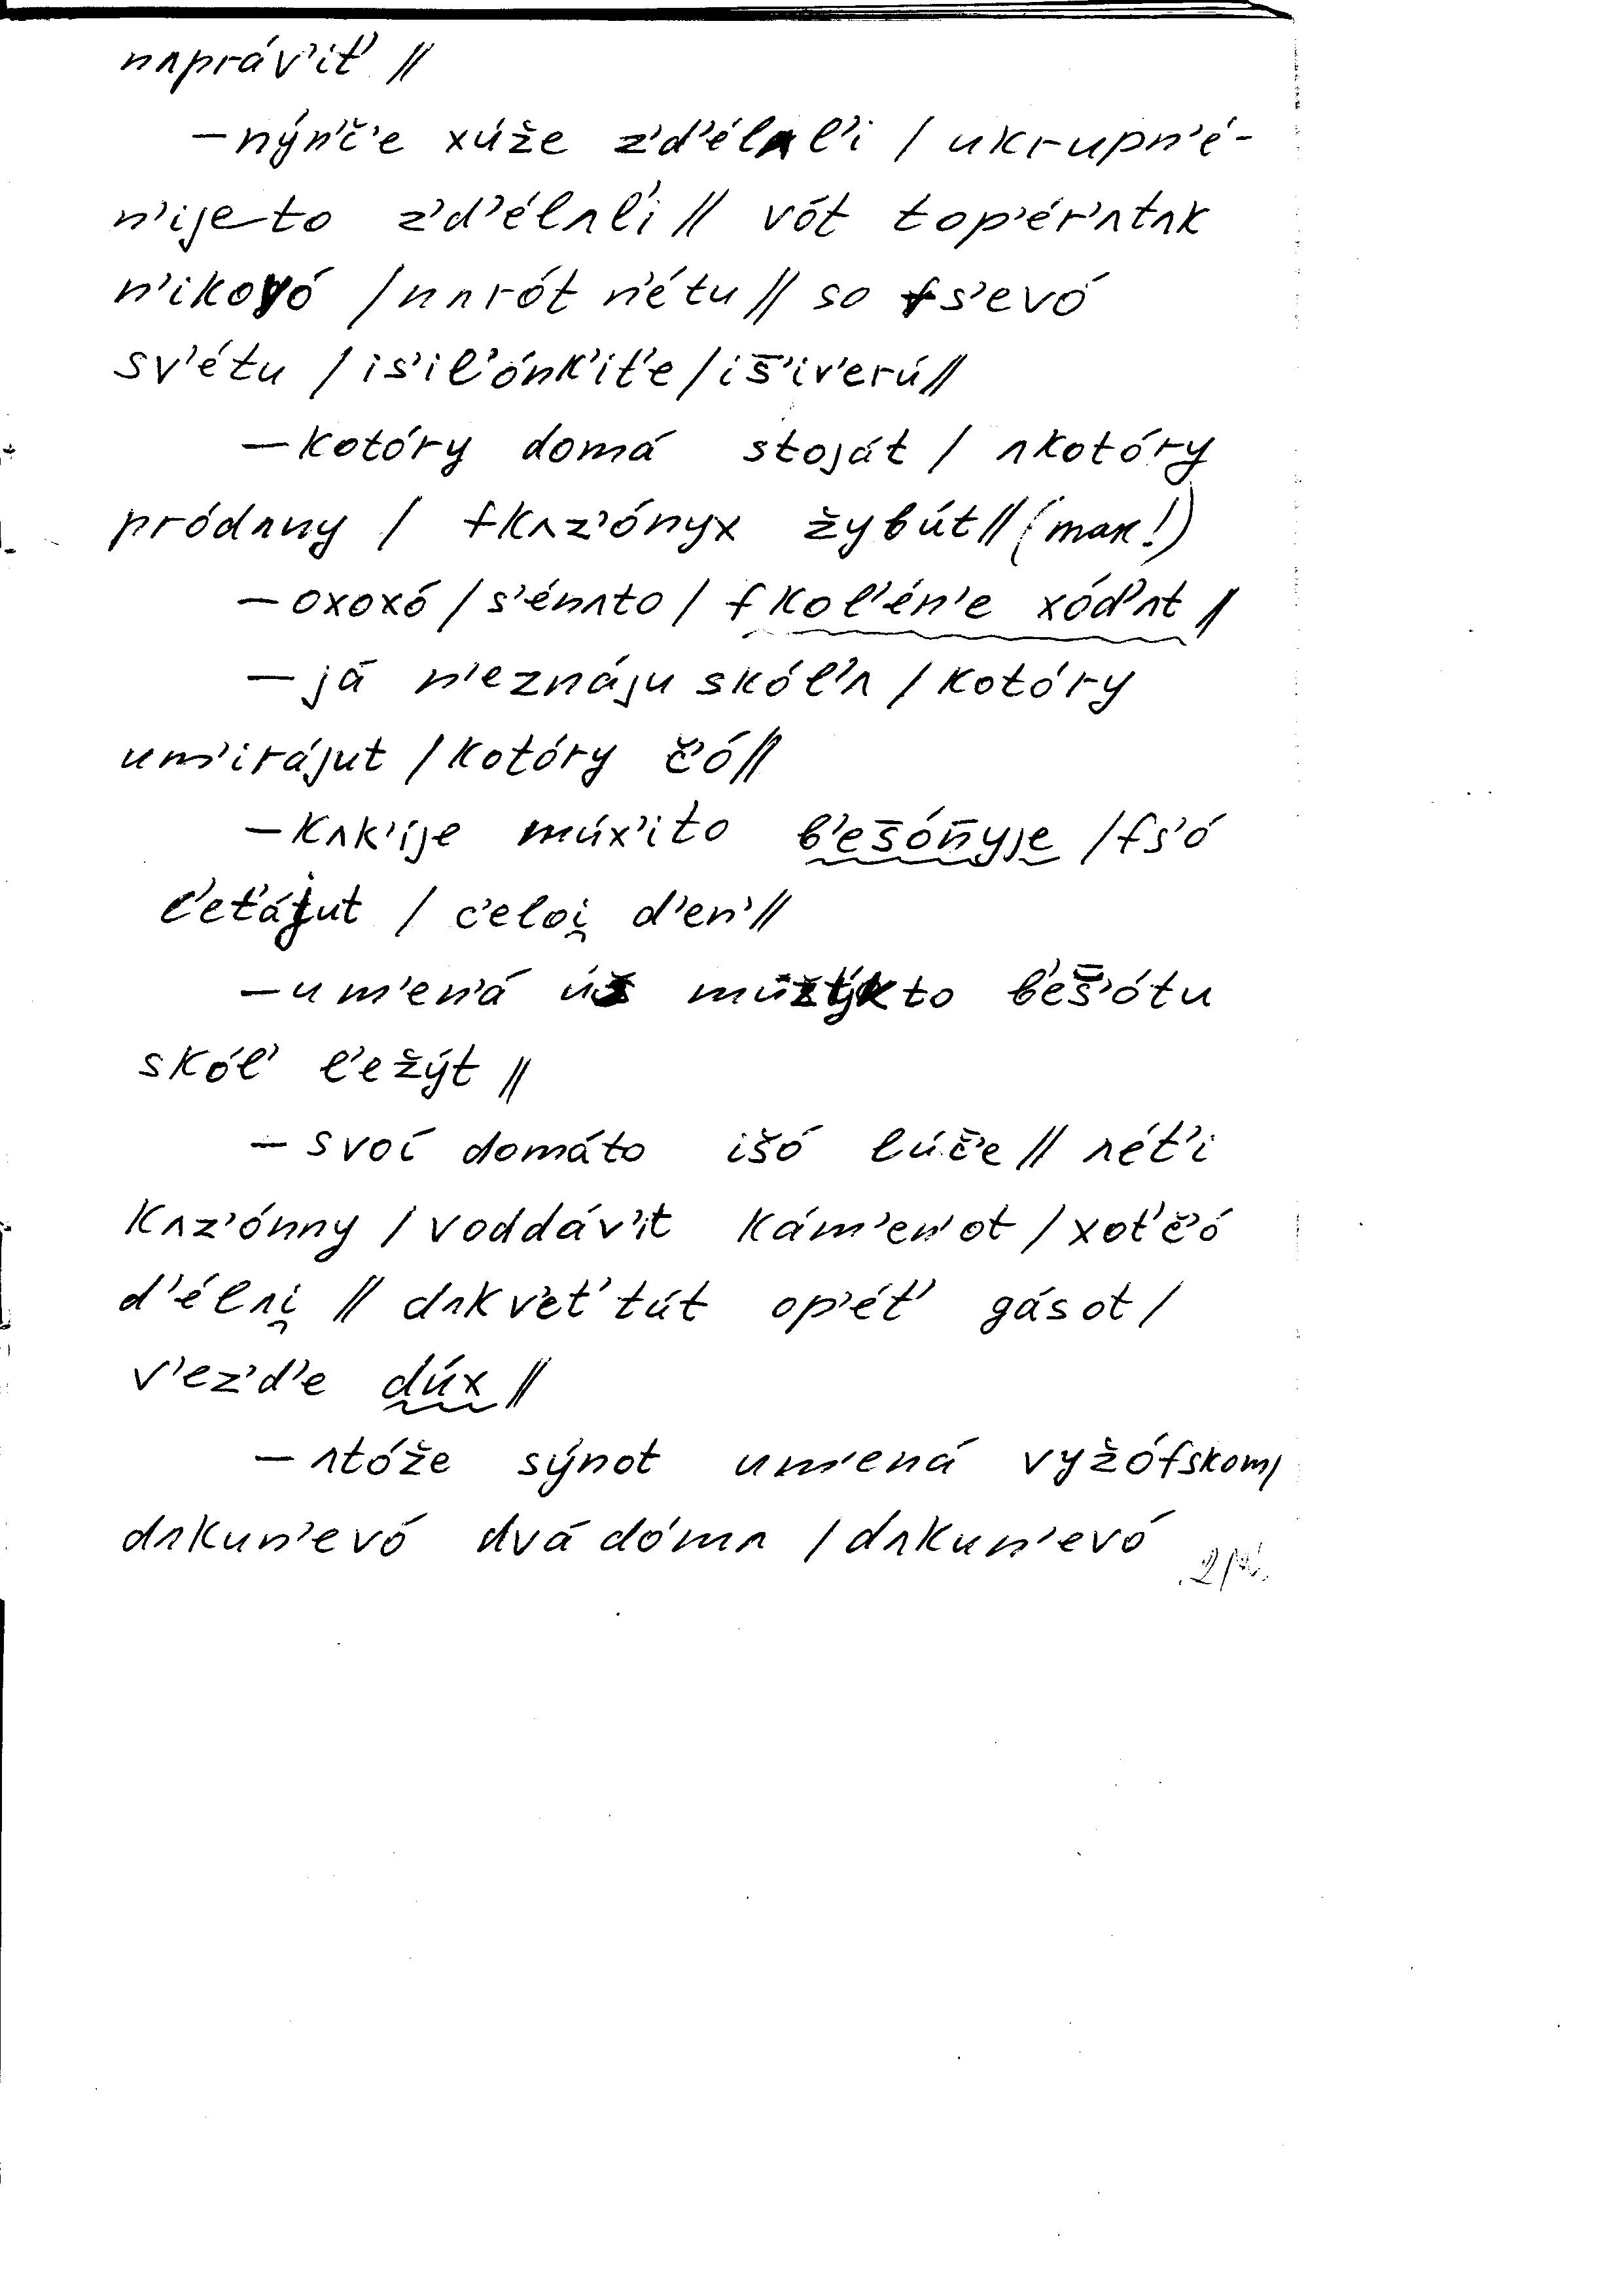 nʌpráv'it' //
– nýn'č'e xúže z'd'élʌl'i / ukrupn'é-
n'ijeto z'd'élʌl'i // vót top'ér'ʌtʌk
n'ikovó / nʌrót n'étu // so fs'evó
sv'étu / is'il'ónk'it'e / iš'iv'erú //
– kotóry domá stoját / ʌkotóry
pródʌny / fkʌz'ónyx žybút // (так!)
– oxoxó / s'énʌto / fkol'én'e xód'ʌt //
– já n'eznáju skól'ʌ / kotóry
um'irájut / kotóry č'ó //
– kʌk'íje múx'ito b'ešónyje / fs'ó
l'etájut / c'eloi̯ d'en' //
– um'en'á úž mužýkto b'eš'ótu
skól' l'ežýt //
– svoí domáto išó lúč'e // ʌét'i
kʌz'ónny / voddáv'it kám'en'ot / xot'č'ó
d'élʌi̯ // dʌkv'et' tút op'ét' gásot /
v'ez'd'e dúx //
– ʌtóže sýnot um'ená vyžófskom /
dʌkun'evó dvá dómʌ / dʌkun'evó